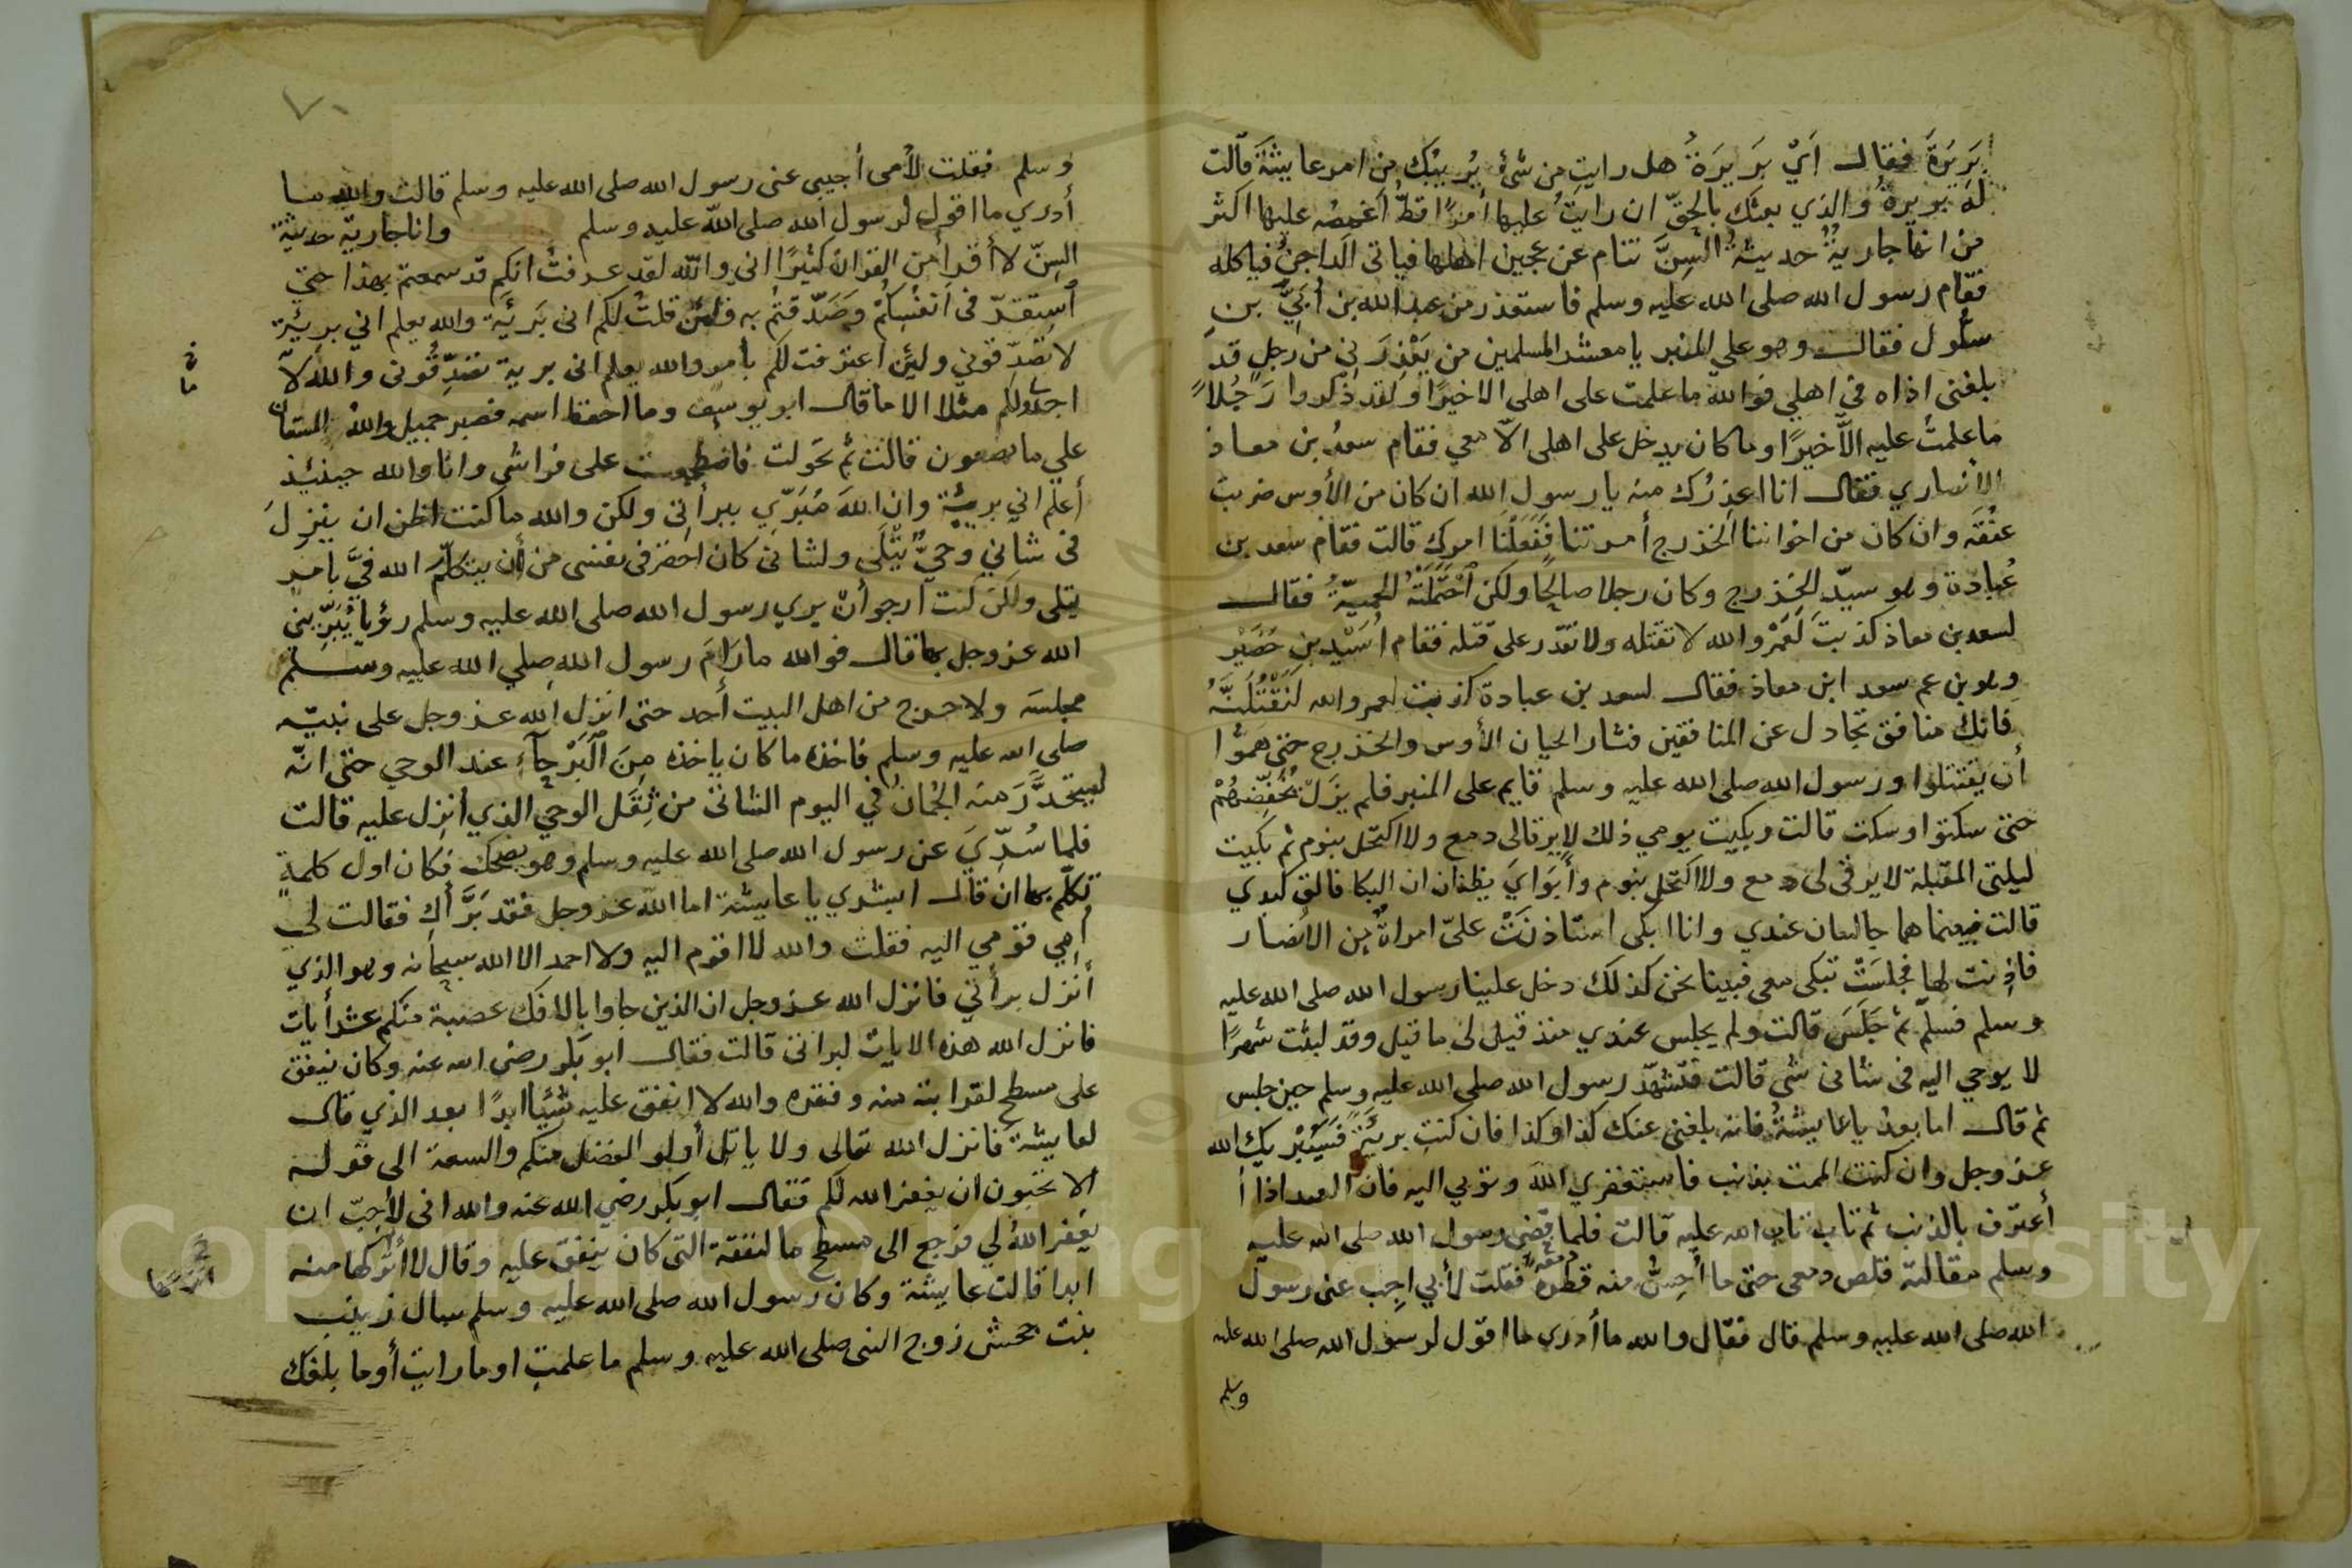 بَرِيرَةَ فقال اَيْ بَرِيرَةُ هل رايتِ من شئ يُرِيبُكِ من امر عايشة قالت
له بريرة والذي بعثك بالحق ان رايتُ عليها أمرًا قطُّ اَغمِصُه عليها اكثر
من انها جاريةٌ حديثةُ السِّنِّ تنام عن عجين اهلها فياتى الداجنُ فياكله
فقام رسول الله صلى الله عليه وسلم فاستعذر من عبد الله بن اُبَيِّ بن
سلُول فقالت وهو علي المنبر يا معشر المسلمين من يَعْذِرَني من رجل قد
بلغنى اذاه فى اهلي فوالله ما علمت على اهلى الا خيرًا ولقد ذكروا رَجُلاً
ما علمتُ عليه الَّا خيرًا وما كان يدخل على اهلى الّا معي فقام سعدُ بن معاذ
الأنصاري فقال انا اعذِرُك منه يا رسول الله ان كان من الأوس ضربت
عنُقَه وان كان من اخواننا الخزرج أمرتنا فَفَعَلْنا امركَ قالت فقام سعد بن
عُبادة وهو سيّد الخزرج وكان رجلا صالحًا ولكن احْتَمَلَتْهُ الحميّةُ فقال
لسعد بن معاذ كذبتَ لَعَمْرُ والله لا تقتله ولا تقدر على قتله فقام اُسَيْد بن حُضَيْر
وهو بن عم سعد ابن معاذ فقال لسعد بن عبادة كذبت لعمر والله لَنَقْتُلَنَّهُ
فانك منافق تجادل عن المنافقين فثار الحيان الأوس والخزرج حتى همُّوا
أن يقتتلوا ورسول الله صلى الله عليه وسلم قايم على المنبر فلم يَزَلْ يُخَفِّضُهُمْ
حتى سكتوا وسكت قالت وبكيت يومي ذلك لا يرقالى دمع ولا اكتحل بنوم ثم بكيت
ليلتى المقبلة لا يرقى لى دمع ولا اكتحل بنوم وأَبَوَايَ يظنان ان البكا فالق كبدي
قالت فبينما هما جالسان عندي وانا ابكى استاذنَتْ علىّ امراةٌ من الأنصار
فاذِنت لها فجلسَتْ تبكى معى فبينا نحن كذلك دخل علينا رسول الله صلى الله عليه
وسلم فسلّم ثم جَلَسَ قالت ولم يجلس عندي منذ قيل لى ما قيل وقد لبثت شهرًا
لا يوحي اليه فى شانى شى قالت فتشهّد رسول الله صلى الله عليه وسلم حين جلس
ثم قال اما بعدُ يا عايشةُ فانه بلغنى عنك كذا وكذا فان كنتِ بريئةً فَسَيُبْريك الله
عز وجل وان كنت الممت بذنب فاستغفري الله وتوبي اليه فان العبد اذا ا
أعترف بالذنب ثم تاب تاب الله عليه قالت فلما قضى رسول الله صلى الله عليه
وسلم مقالته قلص دمعى حتى ما أُحِسُّ منه قطرة فقلت لأبي اجِب عنى رسول
الله صلى الله عليه وسلم قال فقال والله ما أدرى ما اقول لرسول الله صلى الله عليه
وسلم
وسلم فقلت لأمى أجيبى عنى رسول الله صلى الله عليه وسلم قالت والله ما
أدري ما اقول لرسول الله صلى الله عليه وسلم وانا جارية حديثة
السِنّ لا أقرأ من القران كثيرًا انى والله لقد عرفتُ انكم قد سمعتم بهذا حتى
استقرّ فى انفُسِكُمْ وَصَدّقتُم به فلئن قلتُ لكم انى بَريئَة والله يعلم اني بريئة
لا تصدّقوني ولئِن اعترفت لكم بأمر والله يعلم انى برية تصَدِّقُونى والله لا
اجد لى ولكم مثلا الا ما قال ابو يوسف وما احفظ اسمه فصبر جميل والله المستعان
علي ما تصفون قالت ثم تحَولت فاضطجعت على فراشى وانا والله حينئِذ
أعلم اني بريئة وان اللهَ مُبَرِّي ببرأتى ولكن والله ما كنت اظن ان ينزلَ
فى شانى وحيٌ يُتْلَى ولشانى كان احقر فى نفسى من أن يتكلّم الله فيَّ بامر
يتلى ولكن كنت ارجوأن يري رسول الله صلى الله عليه وسلم رؤيا يُبَرِّينى
الله عز وجل بها قال فوالله ما رَامَ رسول الله صلي الله عليه وسلم
مجلسَه ولا خرج من اهل البيت أحد حتى انزل الله عز وجل على نبيّه
صلى الله عليه وسلم فاخذه ما كان ياخذه مِنَ البُرَحآءِ عند الوحي حتى انّه
ليتحَدَّرَ منه الجُمانُ في اليوم الشاتى من ثِقَل الوحي الذي انزِل عليه قالت
فلما سُرِّيَ عن رسول الله صلى الله عليه وسلم وهو يضحك فكان اول كلمةٍ
تكلّم بها ان قال ابشري يا عايشة اما الله عز وجل فقد بَرَّأكِ فقالت لي
أمِي قومي اليه فقلت والله لا اقوم اليه ولا احمد الا الله سبحانه وهو الذي
أنزل برأتي فانزل الله عز وجل ان الذين جاوا بالافك عصبة منكم عشر أيات
فانزل الله هذه الايات لبراتى قالت فقال ابو بكر رضى الله عنه وكان ينفق
على مسطح لقرابته منه وفقره والله لا انفق عليه شيئا ابدًا بعد الذي قال
لعايشة فانزل الله تعالى ولا ياتل أولو الفضل منكم والسعة الى قوله
الا تحبون ان يغفر الله لكم فقال ابو بكر رضي الله عنه والله انى لأحِبّ ان
يغفر اللهُ لي فرجع الى مسطح ما لنفقة التى كان ينفق عليه وقال لا أنزعها منه
ابدا قالت عايشة وكان رسول الله صلى الله عليه وسلم سال زينب
بنت جحش زوج النبى صلى الله عليه وسلم ما علمتِ او ما رايتِ أو ما بلغك
Copyright © King Saud University